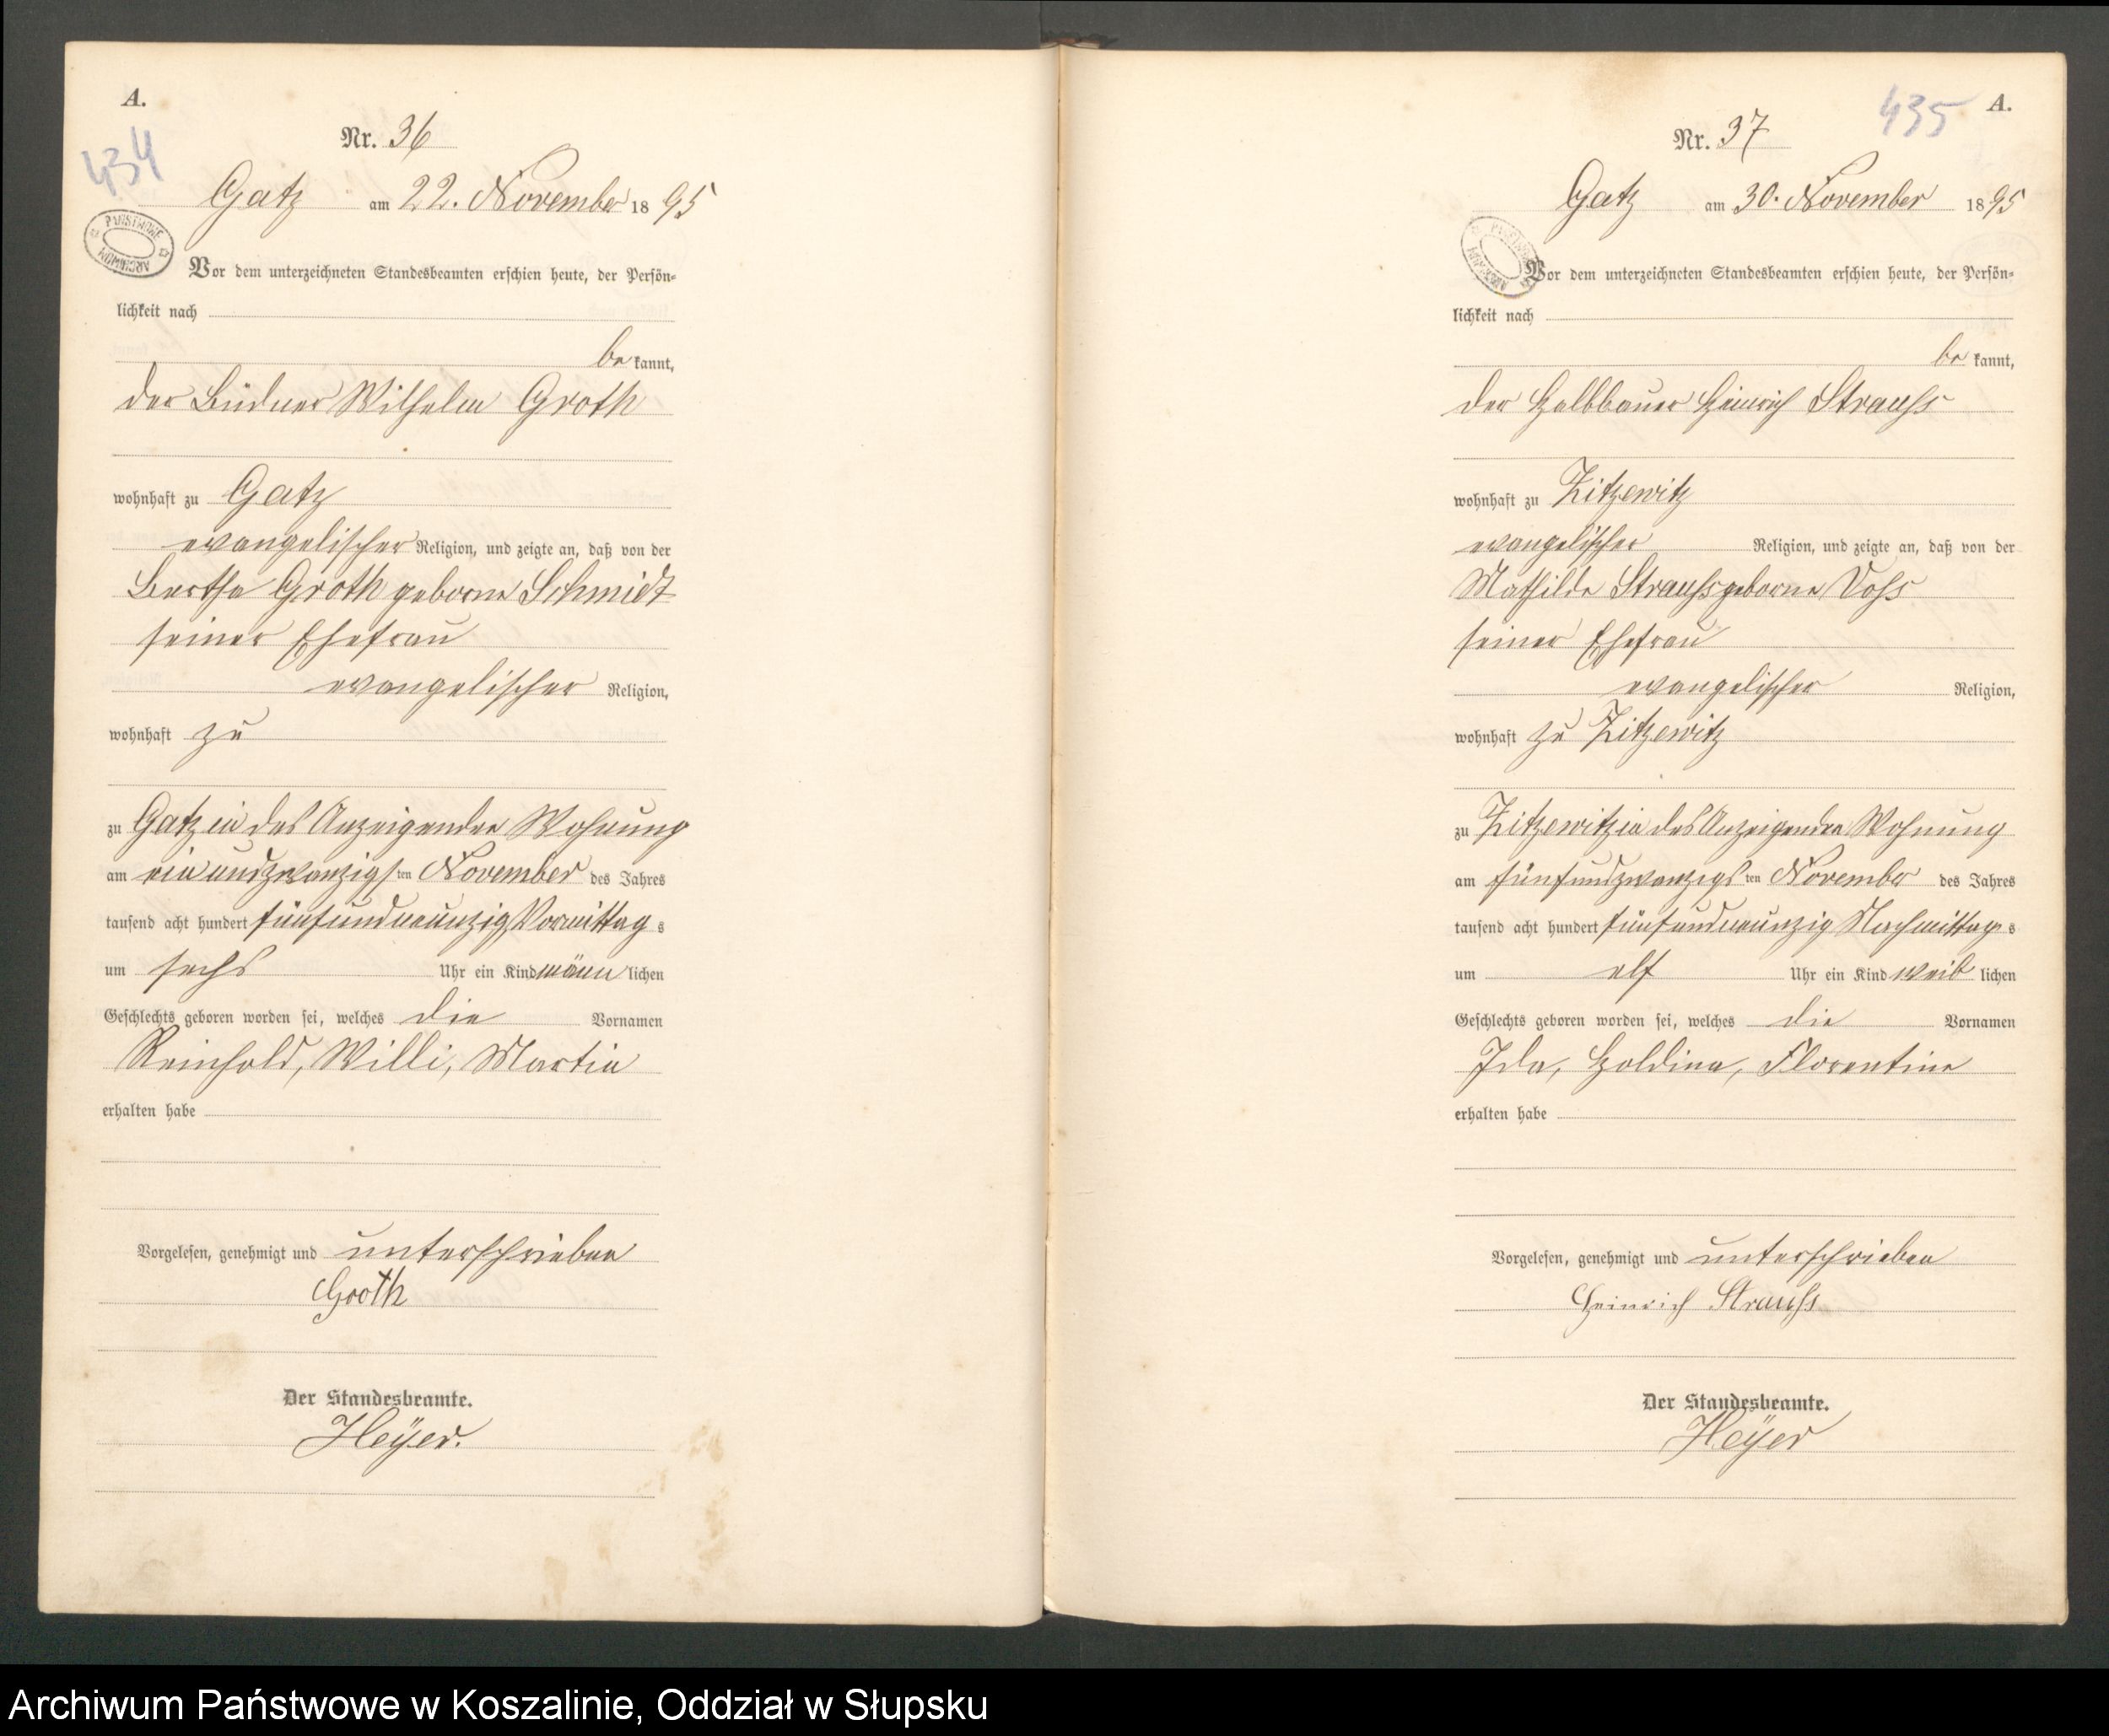 A.
434
Nr. 36
Gatz am 22. November 1895
PAŃSTWOWE
ARCHIWUM
Vor dem unterzeichneten Standesbeamten erschien heute, der Persön-
lichkeit nach
be kannt,
der Büdner Wilhelm Groth
wohnhaft zu Gatz
evangelischer Religion, und zeigte an, daß von der
Bertha Groth geborne Schmidt
seiner Ehefrau
evangelischer Religion,
wohnhaft zu
zu Gatz in des Anzeigenden Wohnung
am ein und zwanzigsten November des Jahres
tausend acht hundert fünfundneunzig Vormittags
um sechs Uhr ein Kind männlichen
Geschlechts geboren worden sei, welches die Vornamen
Reinhold, Willi, Martin
erhalten habe
Vorgelesen, genehmigt und unterschrieben
Groth
Der Standesbeamte.
Heÿer.
435
A.
Nr. 37
Gatz am 30. November 1895
Vor dem unterzeichneten Standesbeamten erschien heute, der Persön-
lichkeit nach
be kannt,
der Halbbauer Heinrich Strauss
wohnhaft zu Zitzewitz
evangelischer Religion, und zeigte an, daß von der
Mathilde Strauss geborne Voss
seiner Ehefrau
evangelischer Religion,
wohnhaft zu Zitzewitz
zu Zitzewitz in des Anzeigenden Wohnung
am fünfundzwanzigsten November des Jahres
tausend acht hundert fünfundneunzig Nachmittags
um elf Uhr ein Kind weiblichen
Geschlechts geboren worden sei, welches die Vornamen
Ida, Holdine, Florentine
erhalten habe
Vorgelesen, genehmigt und unterschrieben
Heinrich Strauss
Der Standesbeamte.
Heÿer
Archiwum Państwowe w Koszalinie, Oddział w Słupsku